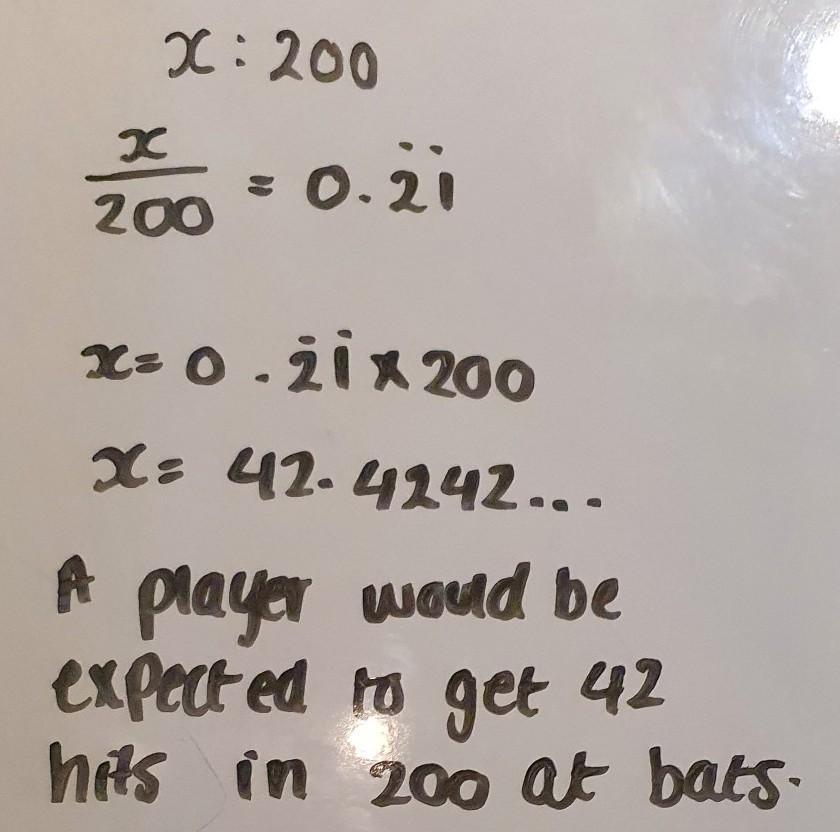 x : 200
x/200 = 0.2̇1̇
x= 0.2̇1̇ x 200
x= 42.4242...
A player would be
expected to get 42
hits in 200 at bats.